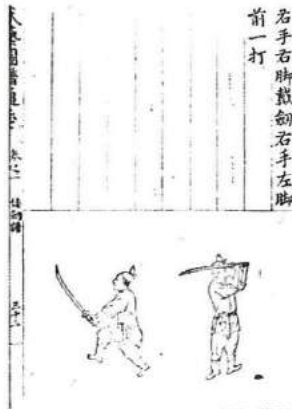 右手右脚戴劒右手左脚
前一打
武藝圖譜通志
卷之二
倭劒譜